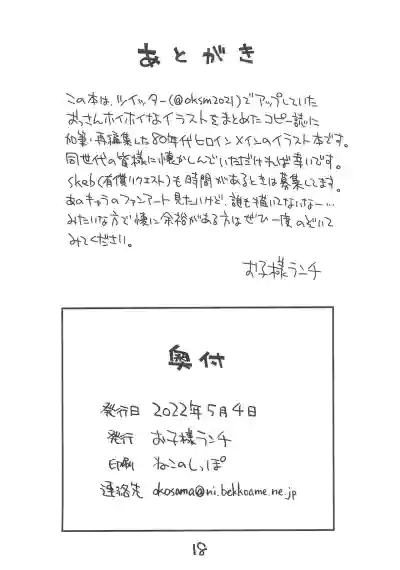 あとがき
この本は、ツイッター(@oksm2021)でアップしていた
おっさんホイホイなイラストをまとめたコピー誌に
加筆・再編集した80年代ヒロインメインのイラスト本です。
同世代の皆様に懐かしんでいただければ幸いです。
skeb(有償リクエスト)も時間があるときは募集してます。
あのキャラのファンアート見たいけど、誰も描いてないなー…
みたいな方で懐に余裕がある方はぜひ一度のぞいて
みてください。
お子様ランチ
奥付
発行日 2022年5月4日
発行 お子様ランチ
印刷 ねこのしっぽ
連絡先 okosama@ni.bekkoame.ne.jp
18